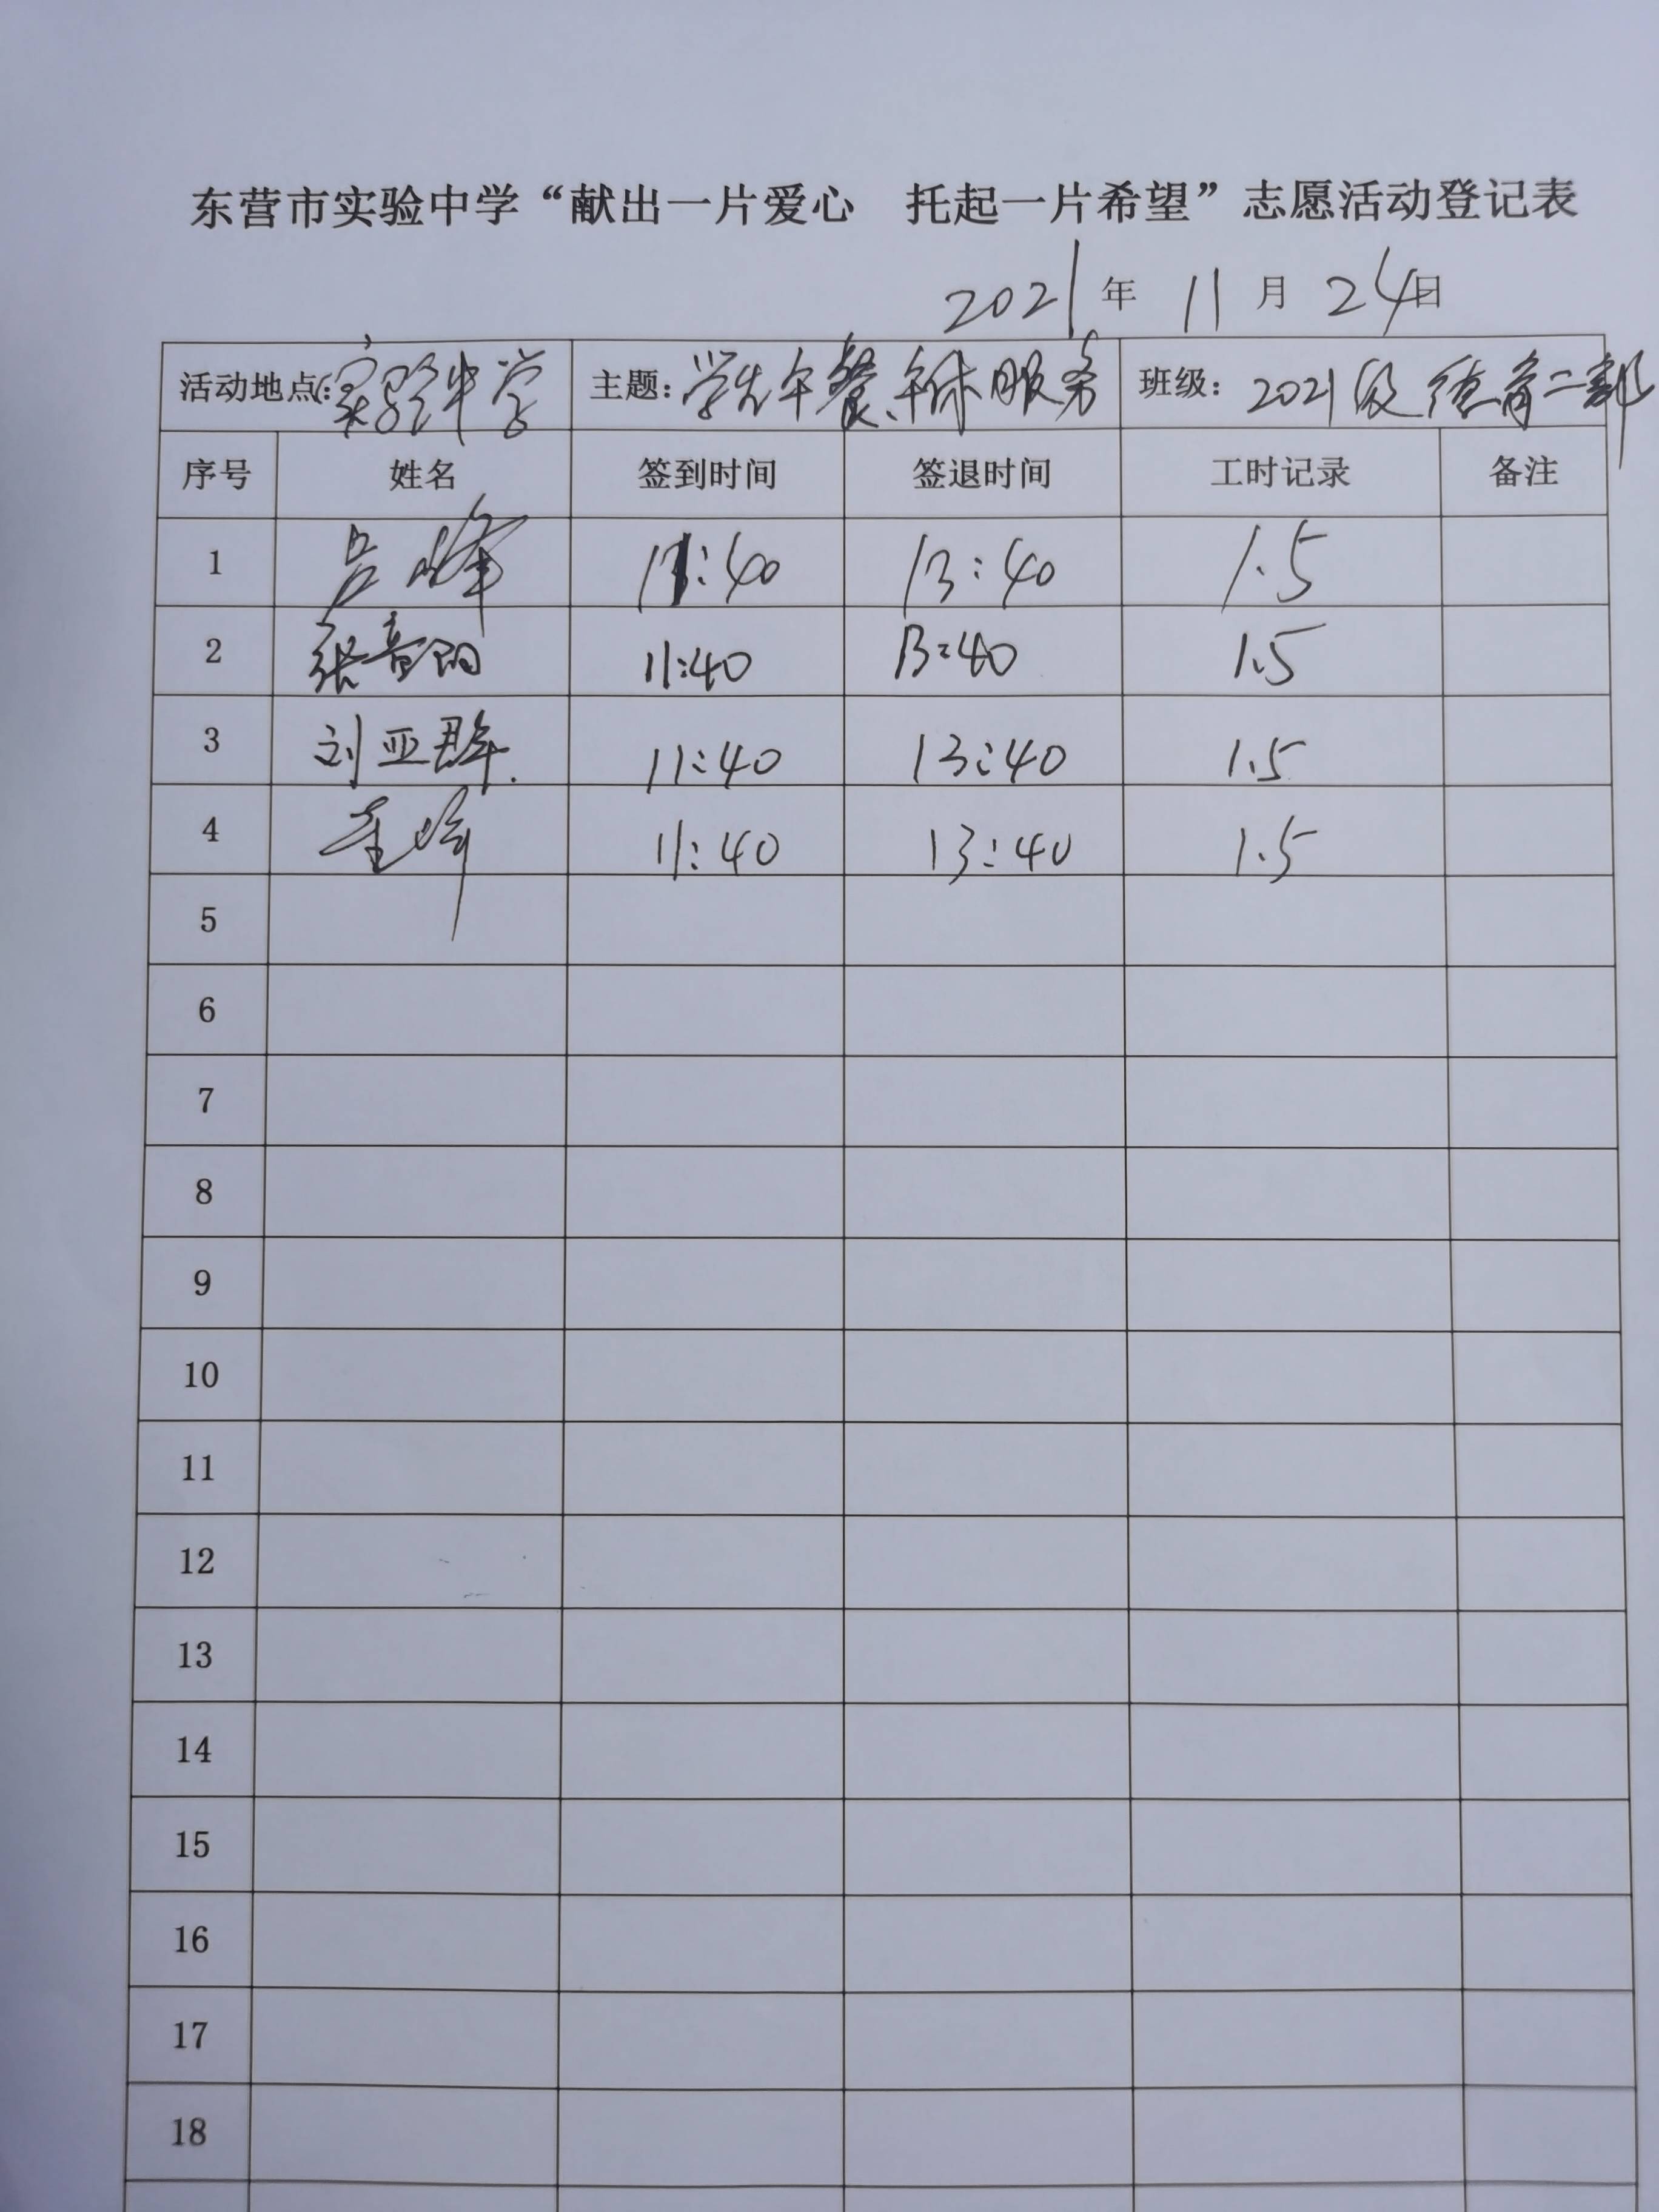 东营市实验中学“献出一片爱心　托起一片希望”志愿活动登记表
2021年 11月 24日
活动地点:实验中学 主题:学生午餐、午休服务 班级:2021级德育二部
序号 姓名 签到时间 签退时间 工时记录 备注
1 吕峰 11:40 13:40 1.5
2 张 11:40 13:40 1.5
3 刘亚群. 11:40 13:40 1.5
4 11:40 13:40 1.5
5
6
7
8
9
10
11
12
13
14
15
16
17
18